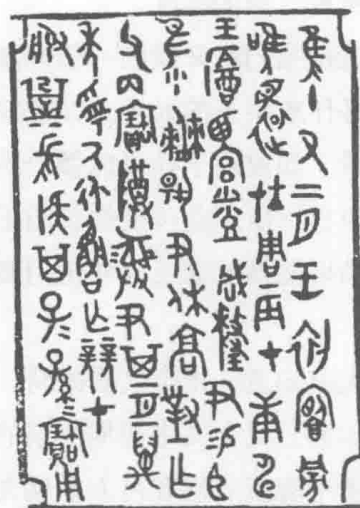 隹十又二月王初饔旁
唯還在周辰才庚申
王酓西宮登咸釐尹易臣
隹小僰揚尹休高對乍
父丙寶尊彝尹其亙萬
年受氒永魯亡競才
服㠱長疑其子子孫孫寶用